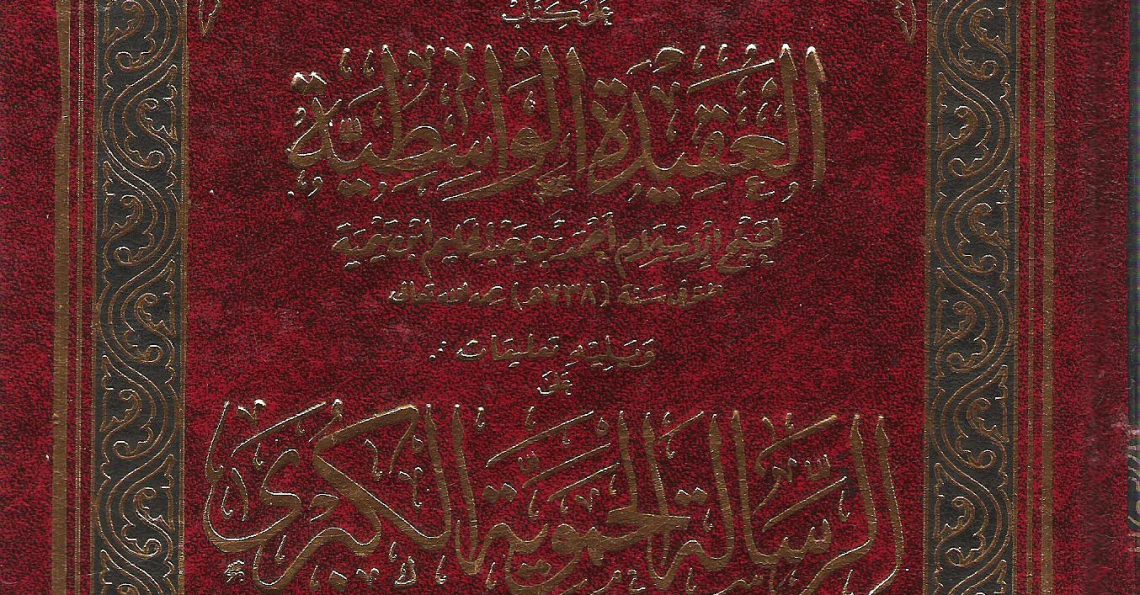 على كتاب
العقيدة الواسطية
لشيخ الإسلام أحمد بن عبد الحليم ابن تيمية
المتوفى سنة (٧٢٨هـ) رحمه الله تعالى
ويليه تعليقات
على
الرسالة الحموية الكبرى